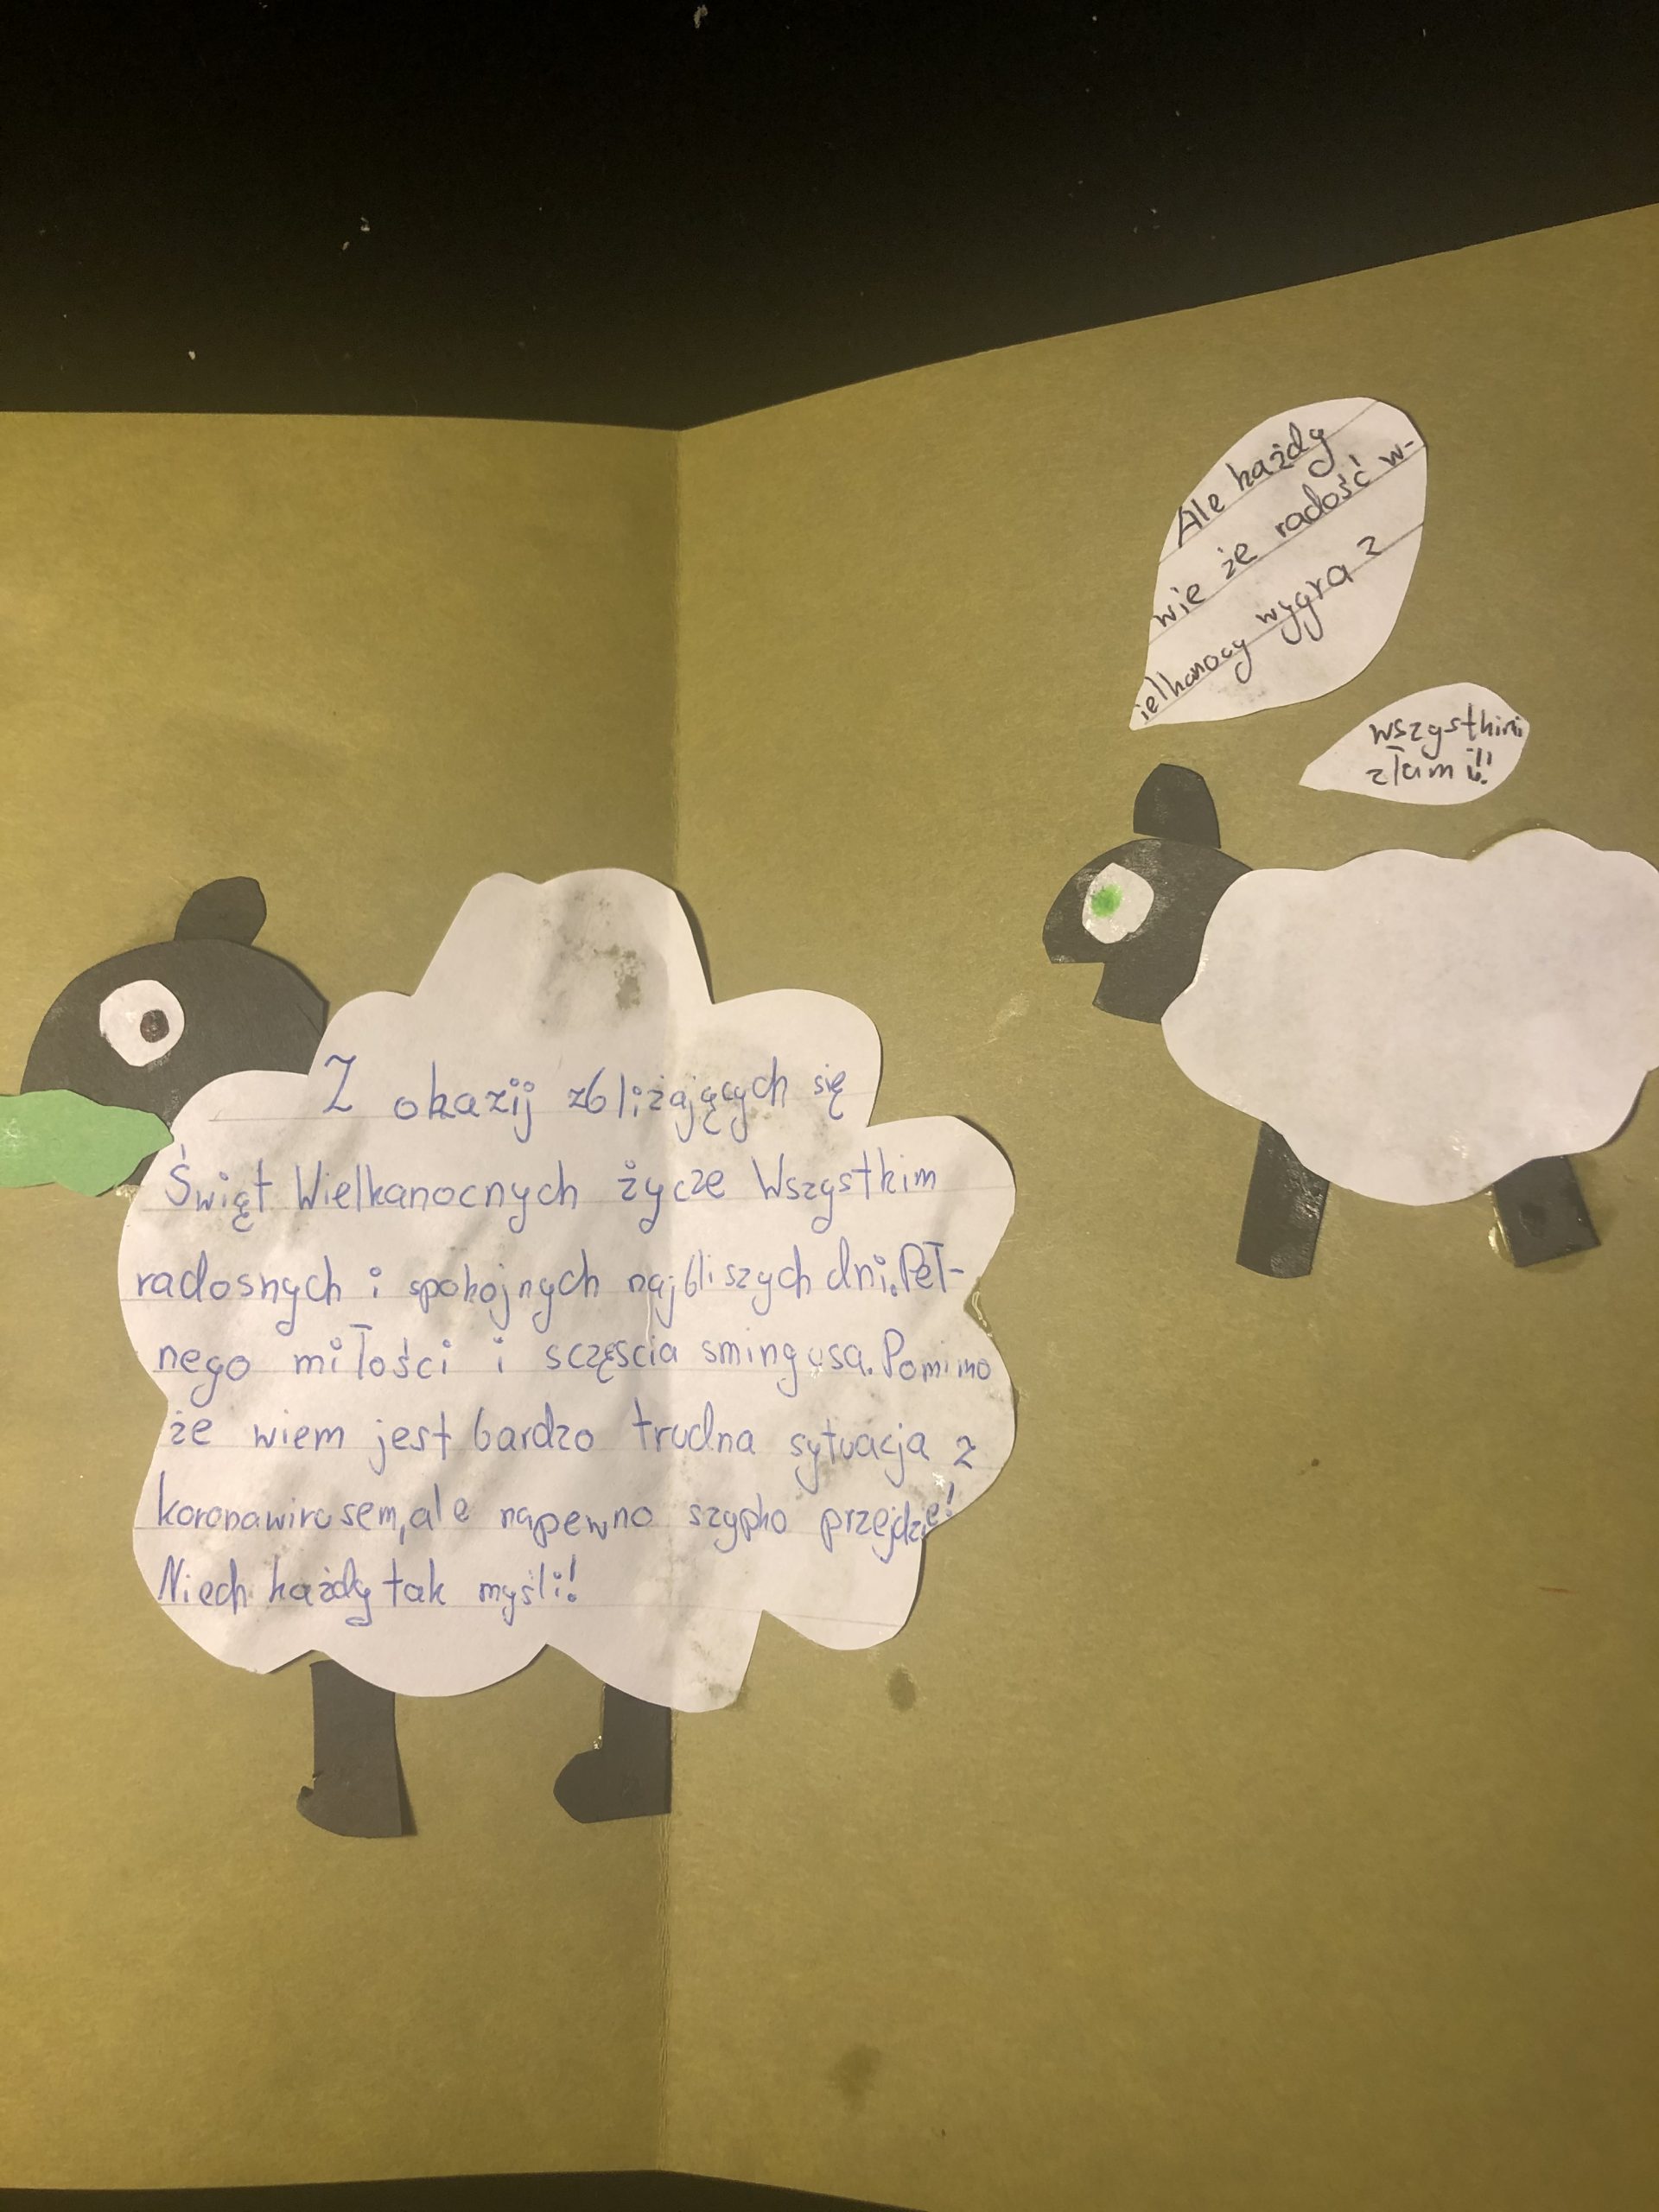 Z okazij zbliżających się
Świąt Wielkanocnych życze Wszystkim
radosnych i spokojnych najbliszych dni. Peł-
nego miłości i sczęscia smingusa. Pomimo
że wiem jest bardzo trudna sytuacja z
koronawirusem, ale napewno szypko przejdzie!
Niech każdy tak myśli!
Ale każdy
wie że radość w-
ielkanocy wygra z
wszystkimi
złami!!